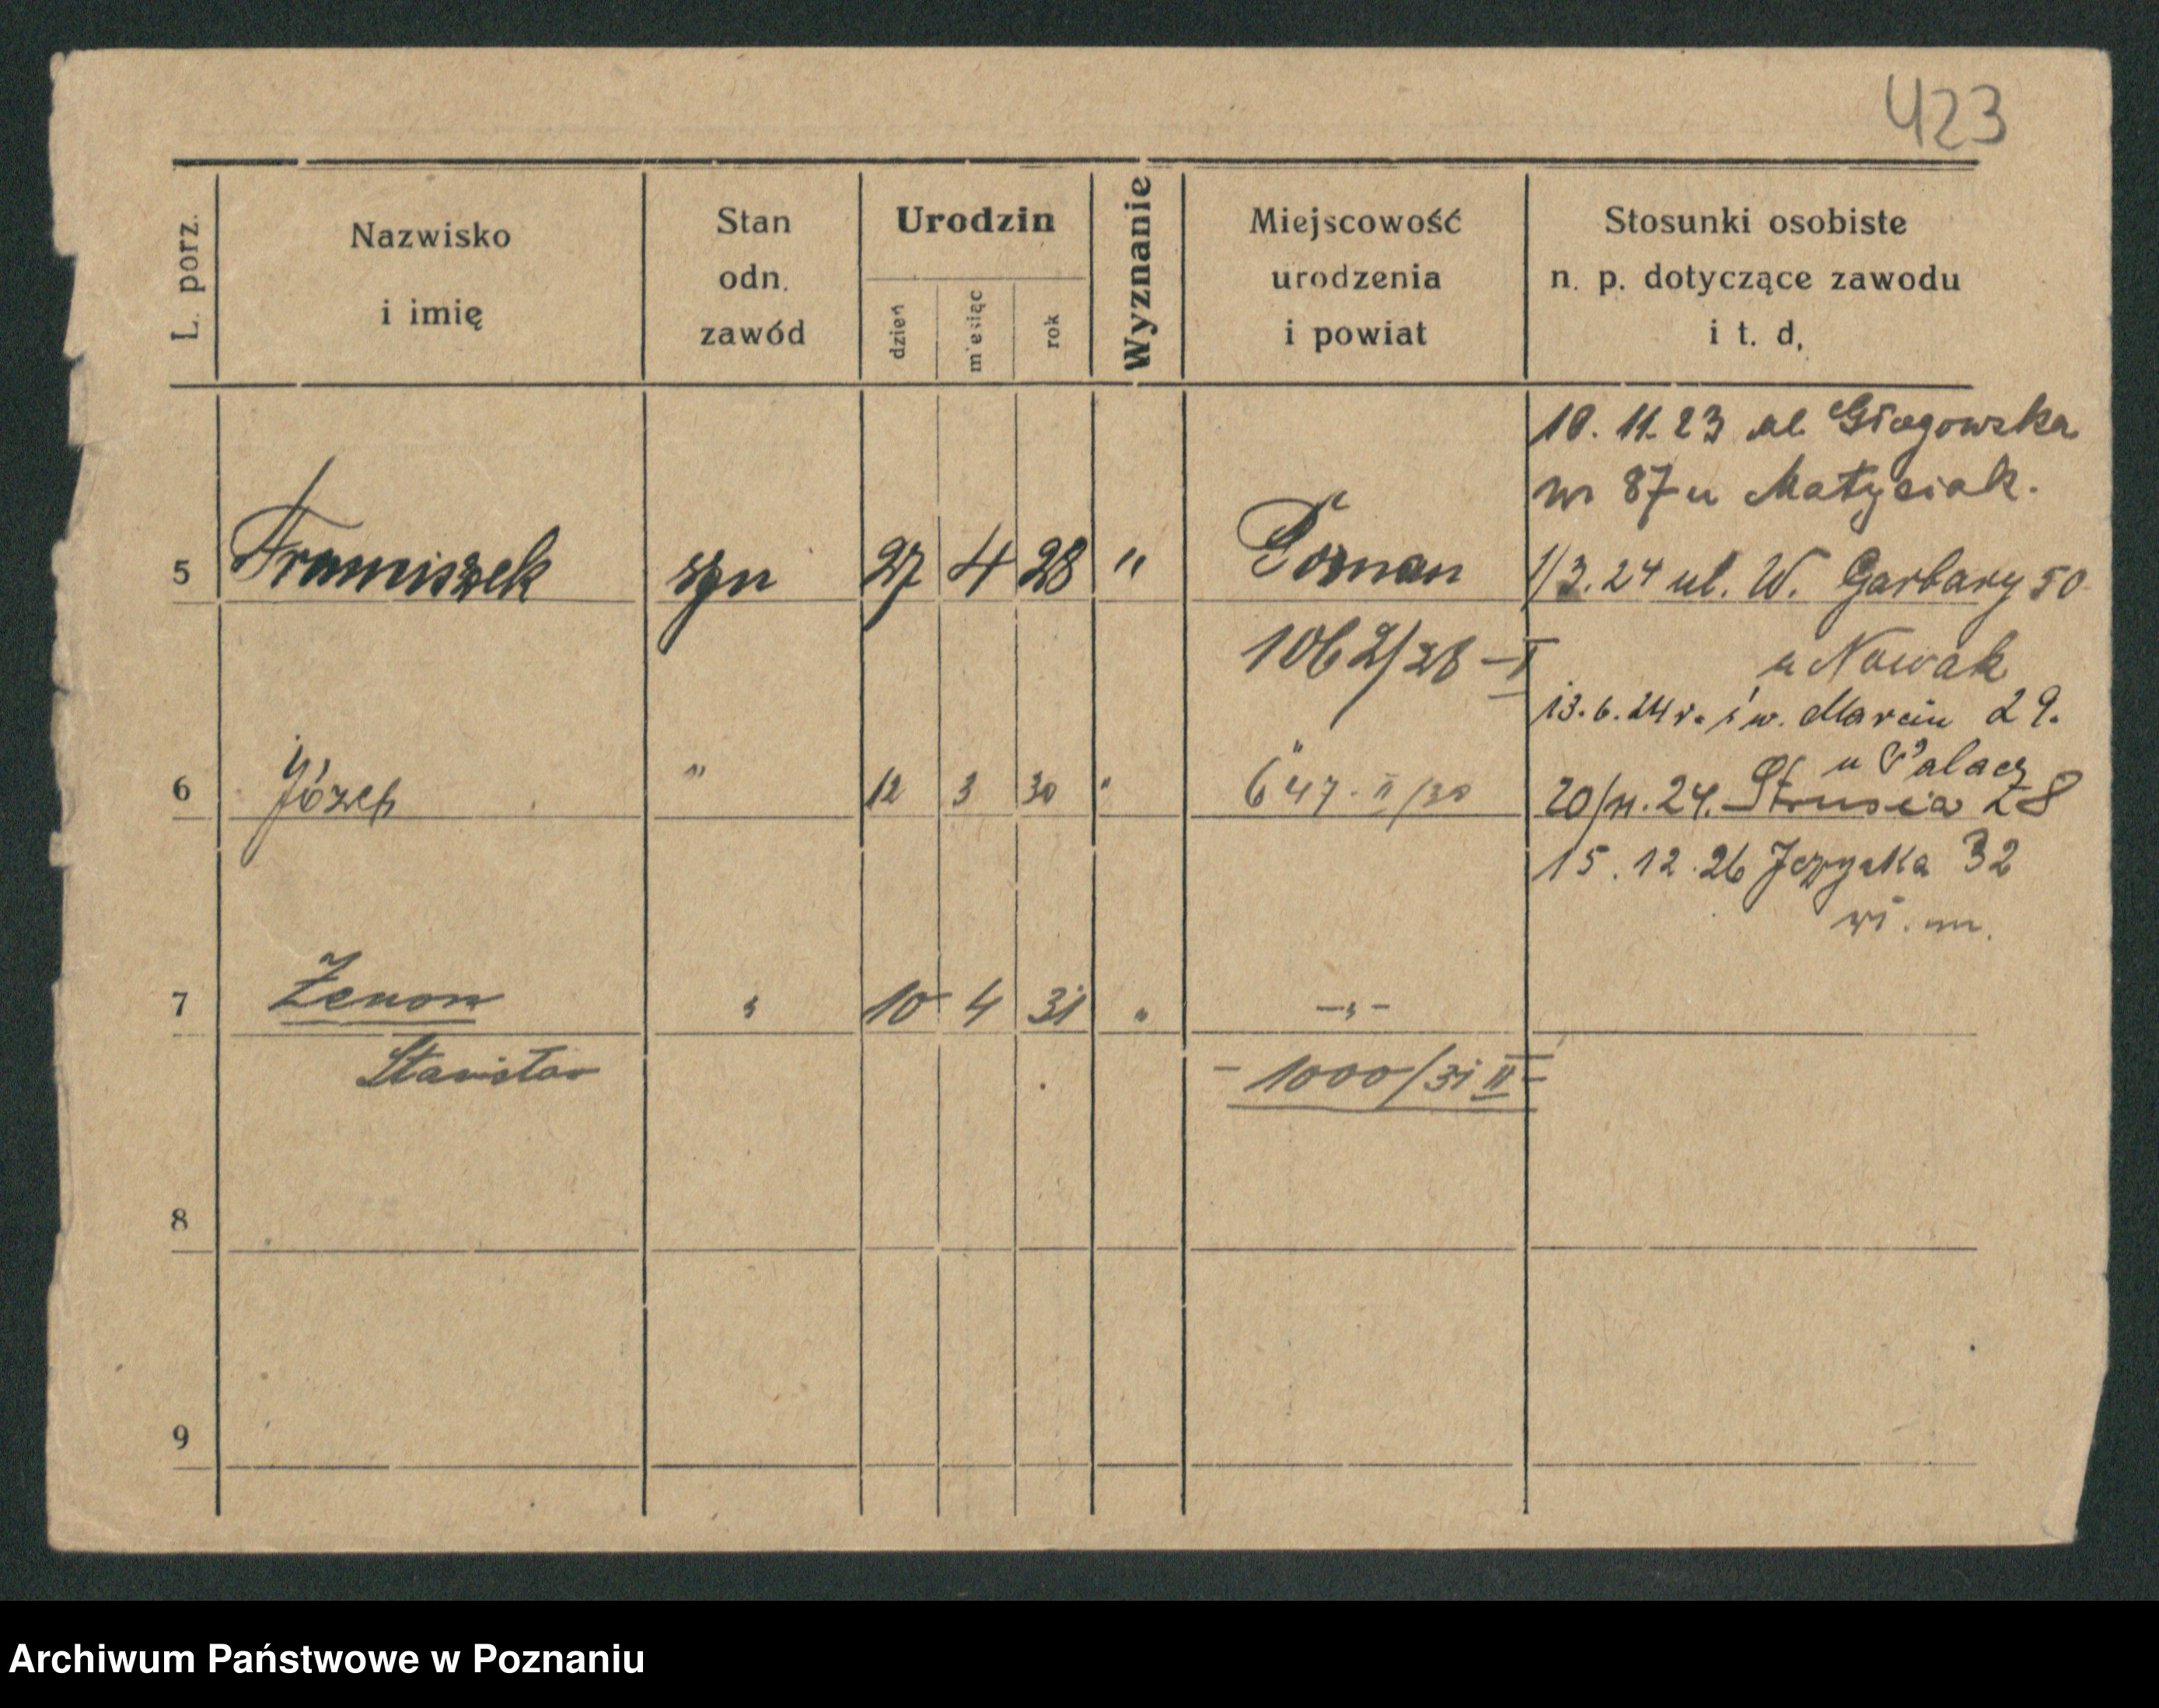 423
L. porz.
Nazwisko
i imię
Stan
odn.
zawód
Urodzin
dzień
miesiąc
rok
Wyznanie
Miejscowość
urodzenia
i powiat
Stosunki osobiste
n. p. dotyczące zawodu
i t. d.
10. 11. 23 ul. Głogowska
nr 87 u Matysiak.
5 Franciszek syn 27 4 28 " Poznań
1/3. 24 ul. W. Garbary 50
u Nowak
1062/28 – I
13. 6. 24 r. św. Marcin 29.
u Palacz
6 Józef " 12 3 30 " "
647. II/30
20/11. 24. Strusia 28
15. 12. 26 Jeżycka 32
7 Zenon " 10 4 31 " – " –
Stanisław
– 1000/31 II –
8
9
Archiwum Państwowe w Poznaniu